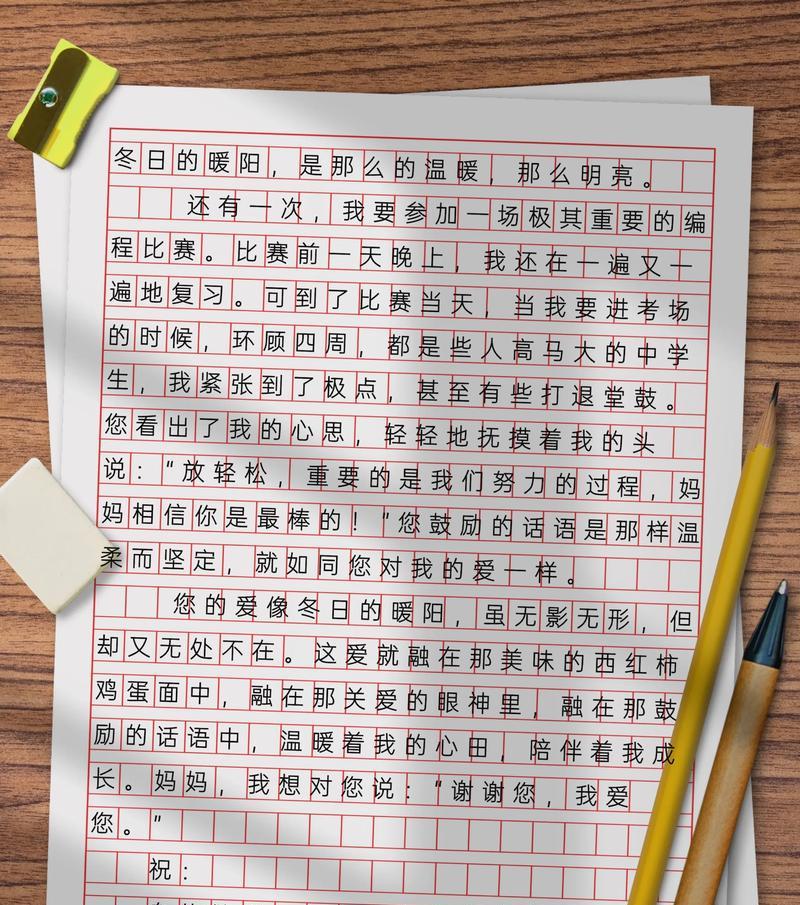 冬日的暖阳，是那么的温暖，那么明亮。
还有一次，我要参加一场极其重要的编
程比赛。比赛前一天晚上，我还在一遍又一
遍地复习。可到了比赛当天，当我要进考场
的时候，环顾四周，都是些人高马大的中学
生，我紧张到了极点，甚至有些打退堂鼓。
您看出了我的心思，轻轻地抚摸着我的头
说："放轻松，重要的是我们努力的过程，妈
妈相信你是最棒的！"您鼓励的话语是那样温
柔而坚定，就如同您对我的爱一样。
您的爱像冬日的暖阳，虽无影无形，但
却又无处不在。这爱就融在那美味的西红柿
鸡蛋面中，融在那关爱的眼神里，融在那鼓
励的话语中，温暖着我的心田，陪伴着我成
长。妈妈，我想对您说："谢谢您，我爱
您。"
祝：